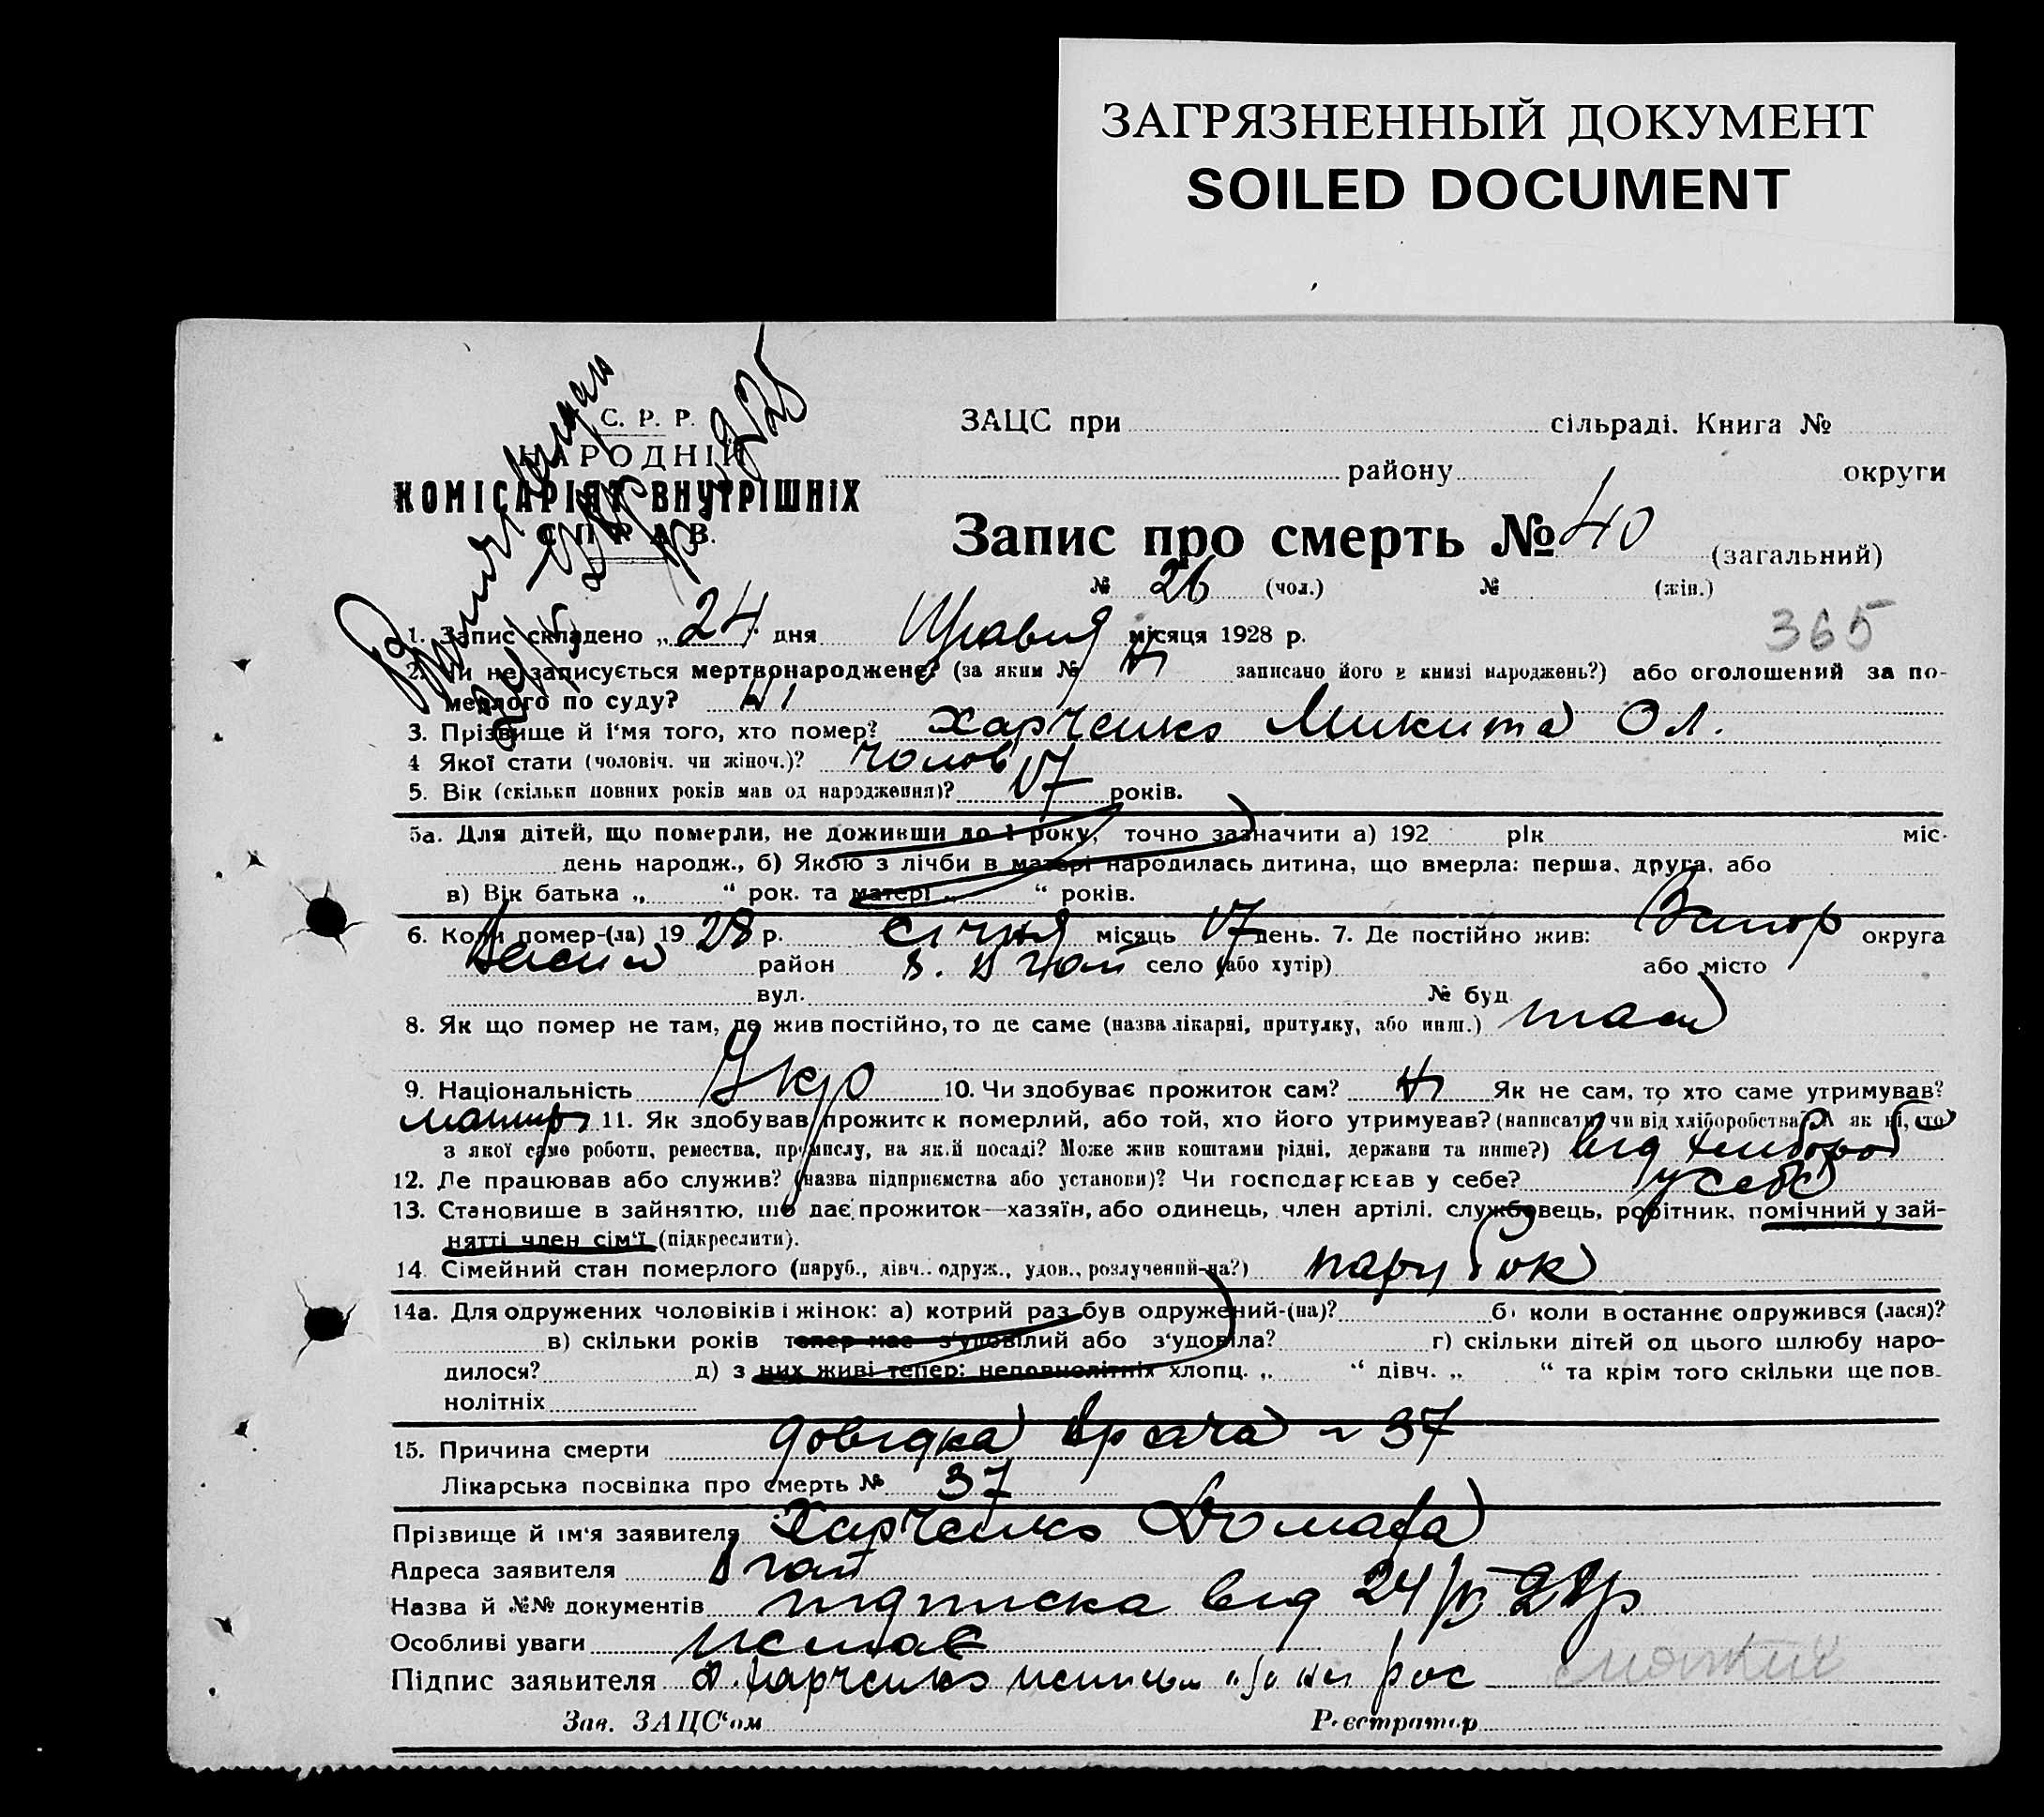 ЗАГРЯЗНЕННЫЙ ДОКУМЕНТ
SOILED DOCUMENT
С. Р. Р.
НАРОДНІЙ
КОМІСАРІЯТ ВНУТРІШНІХ
СПРАВ.
ЗАЦС при сільраді. Книга №
району округи
Запис про смерть № 40 (загальний)
№ 26 (чол.) № (жін.)
365
1. Запис складено „24“ дня Травня місяця 1928 р.
2. Чи не записується мертвонароджене? (за яким № Ні записано його в книзі народжень?) або оголошений за по-
мерлого по суду? Ні
3. Прізвище й і'мя того, хто помер? Харченко Микита Ол.
4 Якої стати (чоловіч. чи жіноч.)? Чолов
5. Вік (скільки повних років мав од народження)? 17 років.
5а. Для дітей, що померли, не доживши до 1 року, точно зазначити а) 192 рік міс.
день народж., б) Якою з лічби в матері народилась дитина, що вмерла: перша, друга, або
в) Вік батька „ “ рок. та матері „ “ років.
6. Коли помер-(ла) 1928 р. січня місяць 17 день. 7. Де постійно жив: Запор округа
район село (або хутір) або місто
вул. № буд
8. Як що помер не там, де жив постійно, то де саме (назва лікарні, притулку, або инш.) там
9. Національність Укр 10. Чи здобуває прожиток сам? Ні Як не сам, то хто саме утримував?
11. Як здобував прожиток померлий, або той, хто його утримував? (написати, чи від хліборобства? А як ні, то
з якої саме роботи, ремества, промислу, на якій посаді? Може жив коштами рідні, держави та инше?) від хлібороб
12. Де працював або служив? (назва підприємства або установи)? Чи господарював у себе? у себе
13. Становище в зайняттю, що дає прожиток—хазяїн, або одинець, член артілі, службовець, робітник, помічний у зай-
нятті член сім'ї (підкреслити).
14. Сімейний стан померлого (паруб., дівч., одруж., удов., розлучений-на?) парубок
14а. Для одружених чоловіків і жінок: а) котрий раз був одружений-(на)? б) коли в останнє одружився (лася)?
в) скільки років тепер має з'удовілий або з'удовіла? г) скільки дітей од цього шлюбу наро-
дилося? д) з них живі тепер: неповнолітніх хлопц. „ “ дівч. „ “ та крім того скільки ще пов-
нолітніх
15. Причина смерти довідка Врача № 37
Лікарська посвідка про смерть № 37
Прізвище й ім'я заявителя Харченко Домаха
Адреса заявителя
Назва й №№ документів підписка від 24/V 28р
Особливі уваги немає
Підпис заявителя Д. Харченко
Зав. ЗАЦС'ом Реєстратор